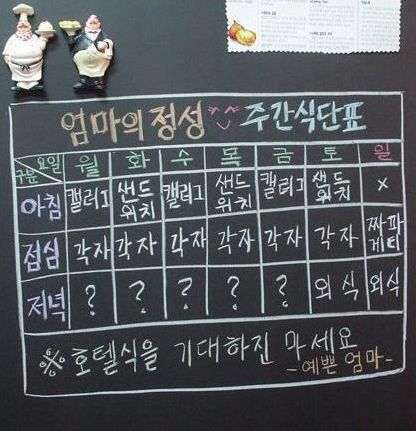 엄마의 정성 ^^ 주간식단표
구분 요일 월 화 수 목 금 토 일
아침 캘러그 샌드위치 캘리그 샌드위치 캘리그 샌드위치 x
점심 각자 각자 각자 각자 각자 각자 짜파게티
저녁 ? ? ? ? ? 외식 외식
※ 호텔식을 기대하진 마세요
-예쁜 엄마-